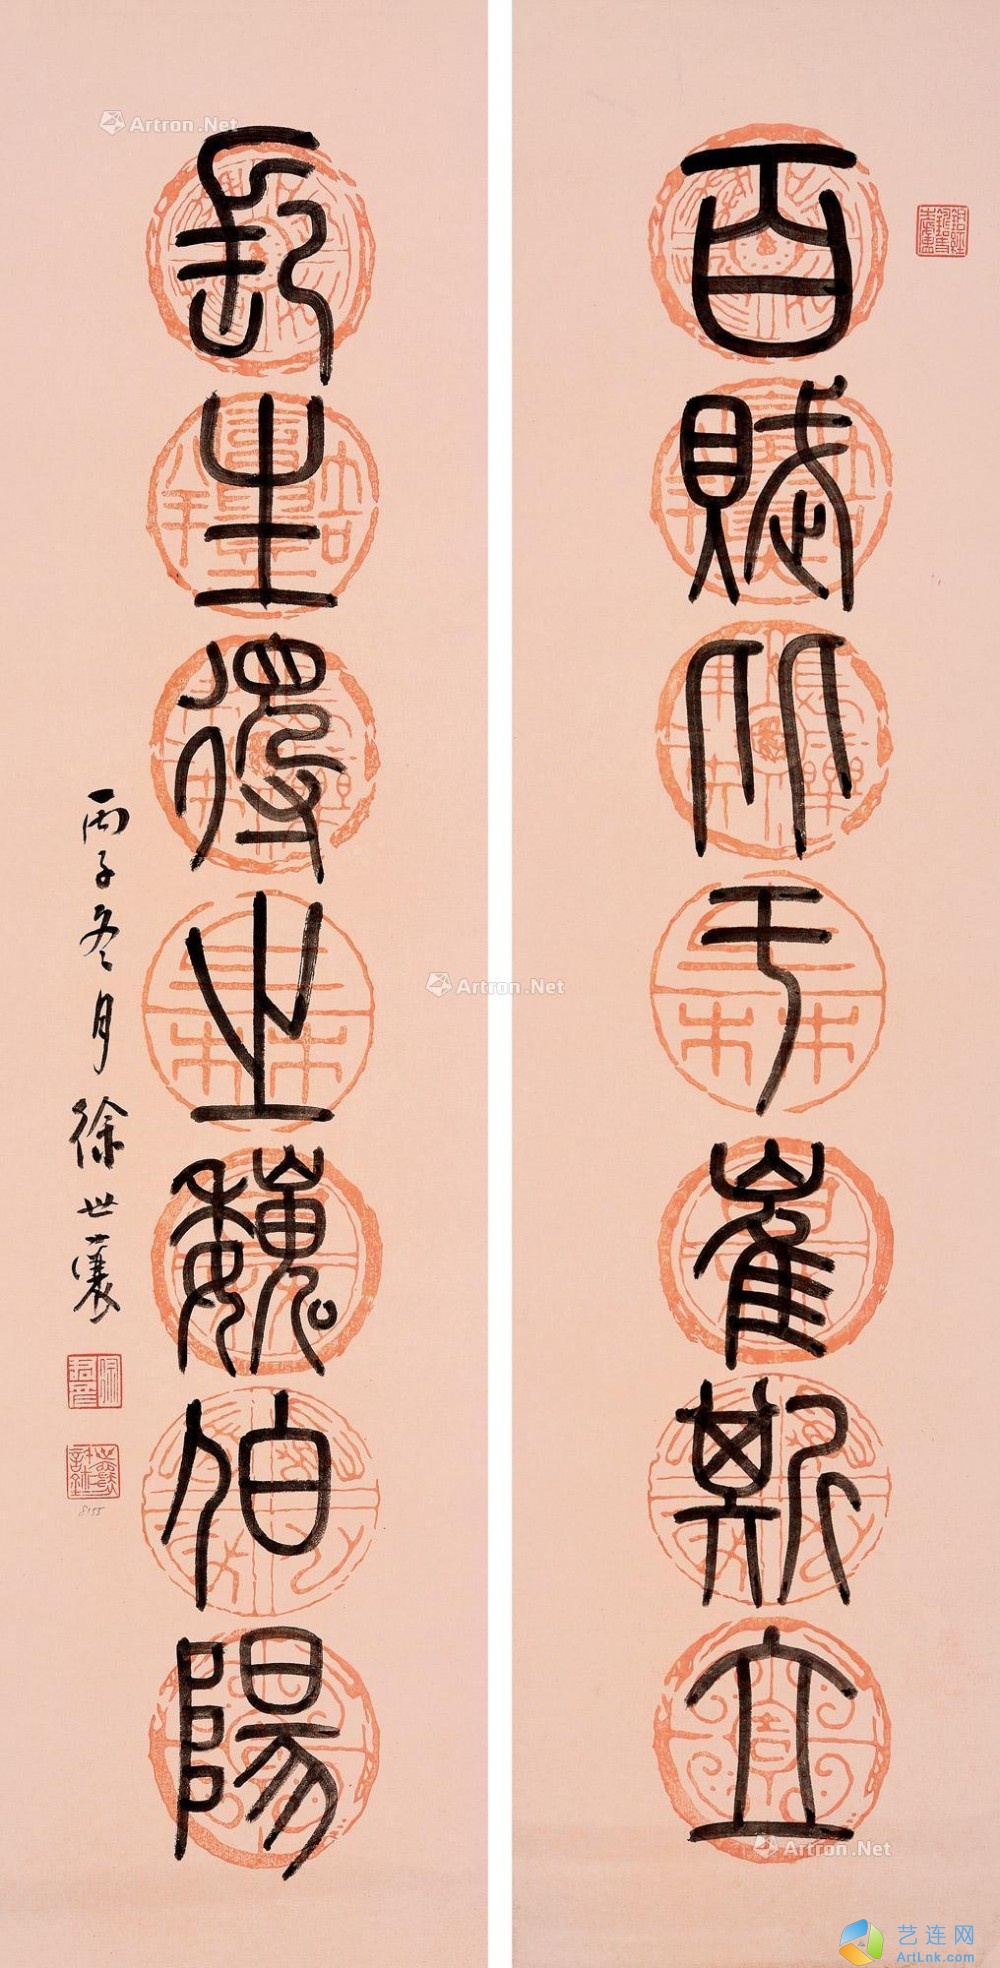 百賦比于崔斯立
長生得之魏伯陽
丙子冬月徐世襄
Artron.Net
Artron.Net
Artron.Net
艺连网
ArtLnk.com